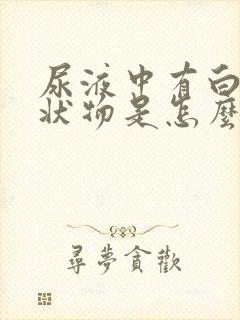 尿液中有白
状物是怎麼
尋夢貪歡